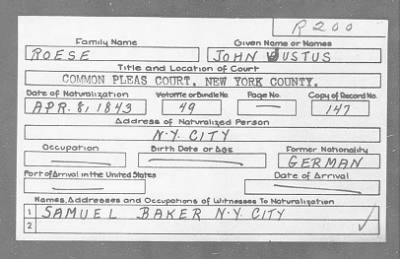 R 200
Family Name Given Name or Names
ROESE JOHN JUSTUS
Title and Location of Court
COMMON PLEAS COURT, NEW YORK COUNTY.
Date of Naturalization Volume or Bundle No. Page No. Copy of Record No.
APR. 8, 1843 49 — 147
Address of Naturalized Person
N.Y. CITY
Occupation Birth Date or Age Former Nationality
— — GERMAN
Port of Arrival in the United States Date of Arrival
— —
Names, Addresses and Occupations of Witnesses To Naturalization
1 SAMUEL BAKER N.Y. CITY
2